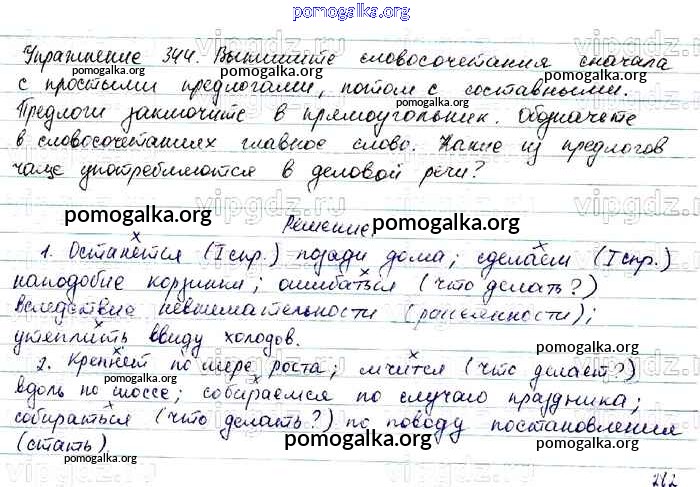 pomogalka.org
Упражнение 344. Выпишите словосочетания сначала
с простыми предлогами, потом с составными.
Предлоги заключите в прямоугольник. Обозначьте
в словосочетаниях главное слово. Какие из предлогов
чаще употребляются в деловой речи?
Решение
1. Останется (I спр.) позади дома; сделаем (I спр.)
наподобие корзинки; ошибаться (что делать?)
вследствие невнимательности (рассеянности);
утеплить ввиду холодов.
2. Крепнет по мере роста; мчится (что делает?)
вдоль по шоссе; собираемся по случаю праздника;
собираться (что делать?) по поводу постановления
(стать)
pomogalka.org
vipgdz.ru
282